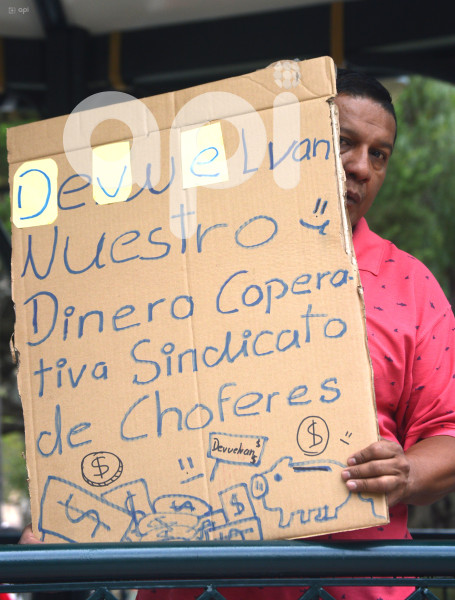 api
api
DevuelVan
Nuestro
Dinero Copera-
tiva Sindicato
de Choferes
Devuelvan $
$
$
$
$
$